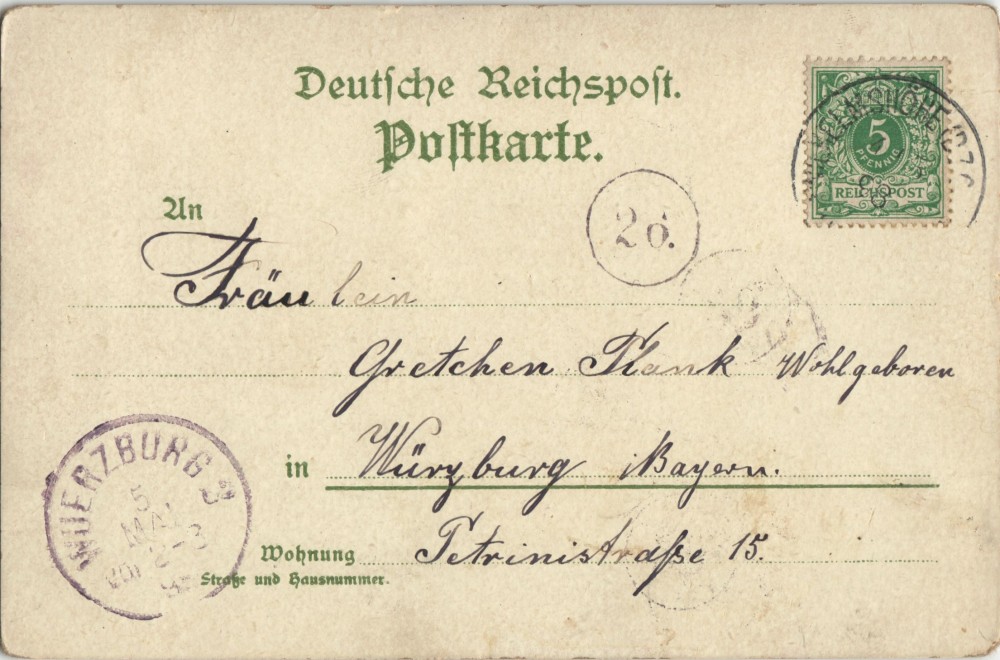 Deutsche Reichspost.
Postkarte.
5
PFENNIG
REICHSPOST
An
26.
Fräulein
Gretchen Plank Wohlgeboren
in Würzburg Bayern.
WUERZBURG 3
5
MAI
Wohnung Petrinistraße 15.
Straße und Hausnummer.